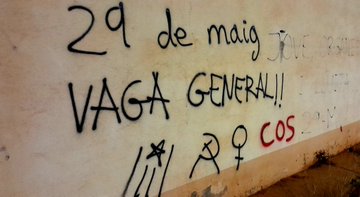 29 de maig
VAGA GENERAL!!
COS
29-M